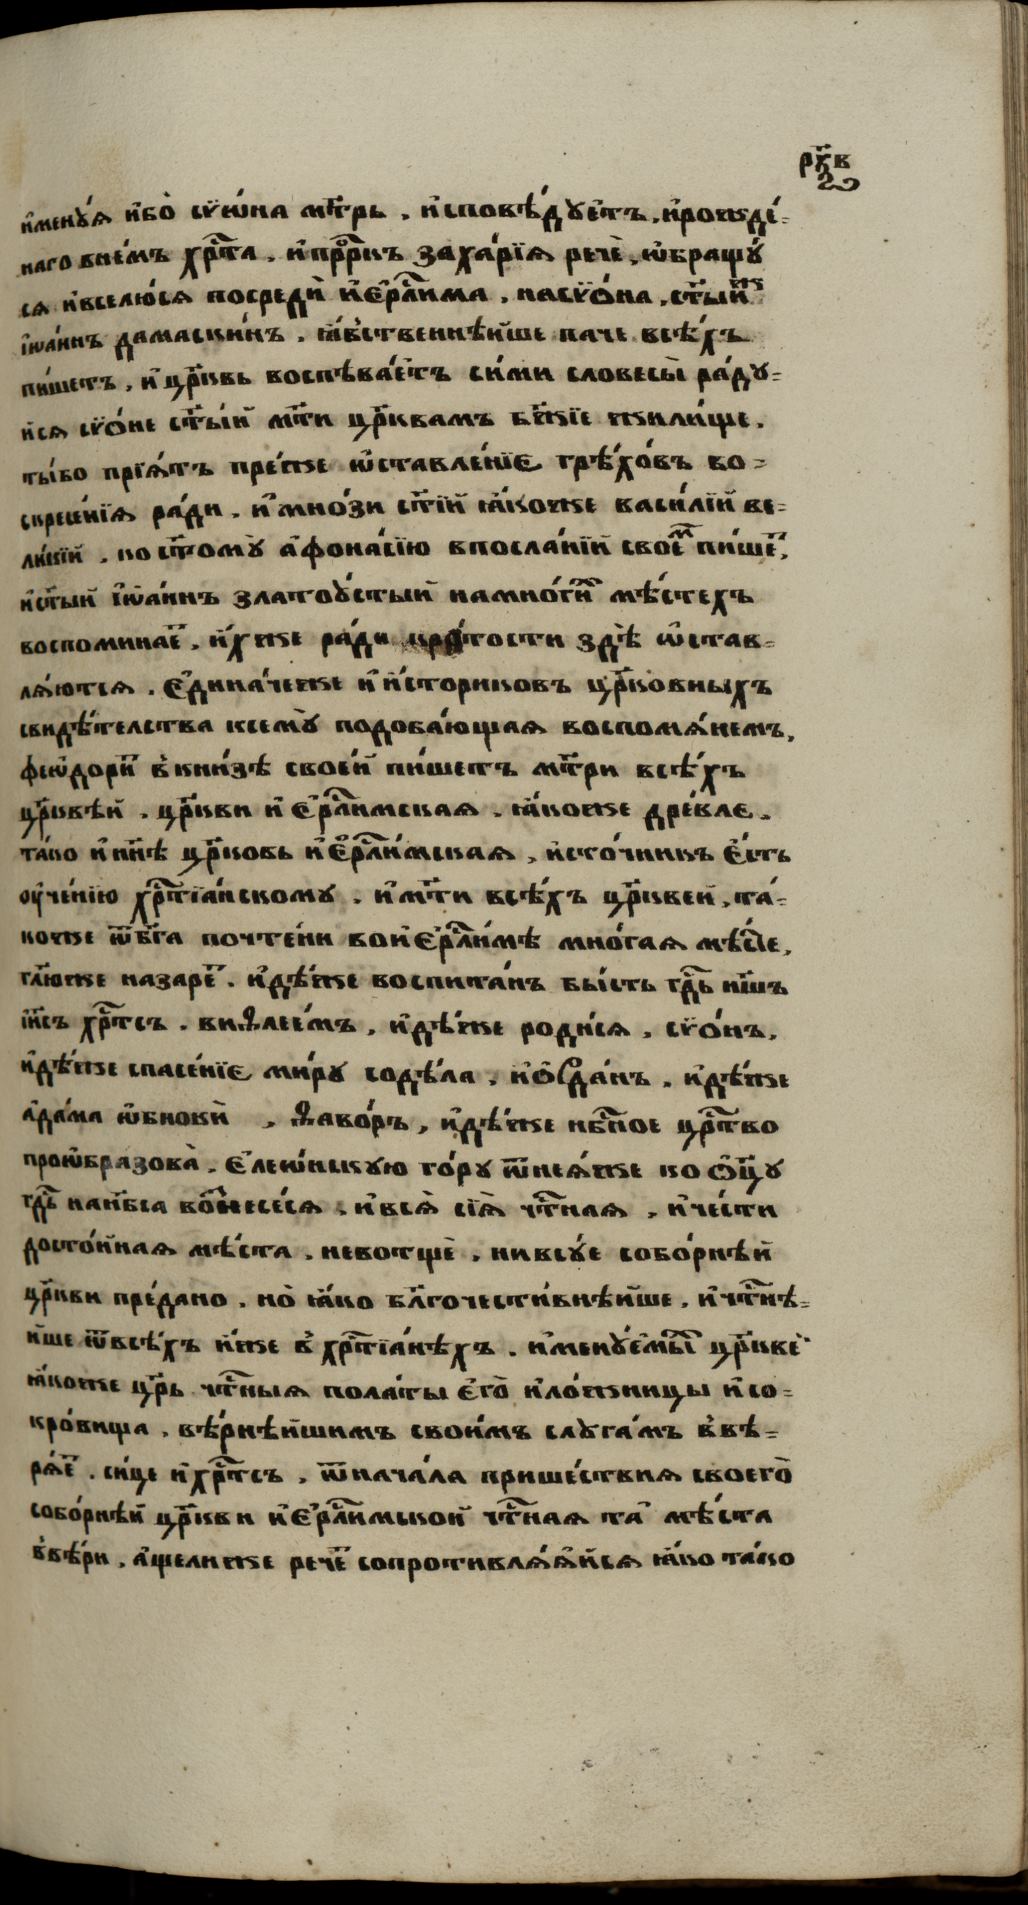 рк҃в
и҆менꙋ́ѧ и҆́бо сѵѡ́на мт҃рь . и҆сповѣ́дꙋетъ , и҆рожде́-
наго внемъ хрⷭ҇та̀ . и҆прⷪ҇ркъ захарїѧ речѐ , ѡ҆бращꙋ́
сѧ и҆вселю́сѧ посредѝ и҆є҆рⷭ҇лима , насѵѡ́на , ст҃ый же
і҆ѡа́ннъ дамаски́нъ . ꙗ҆́вственнѣйше паче всѣ́хъ
пи́шетъ , и҆ цр҃ковь воспѣва́етъ си́ми словесы̀ ра́дꙋ-
йсѧ сѵѡ́не ст҃ы́й мт҃и цр҃квамъ бж҃їе жили́ще .
ты́бо прїѧ́тъ пре́же ѡ҆ставле́нїе грѣхо́въ во-
скресе́нїѧ ра́ди . и҆ мно́зи ст҃і́й ꙗ҆́коже васи́лїй ве-
ли́кїй . ко ст҃омꙋ̀ а҆фона́сїю впосла́нїй своеⷨ пи́шеⷮ ,
и҆ст҃ый і҆ѡа́ннъ златоꙋ́стый намно́гиⷯ мѣ́стехъ
воспомина́еⷮ , и҆́хже ра́ди кратости здѣ̀ ѡ҆став-
лѧ́ютсѧ . є҆дина́чеже и҆ и҆сториковъ цр҃ковныхъ
свидѣ́телства ксемꙋ̀ подоба́ющаѧ воспомѧ́немъ ,
ѳеѡ́дориⷮ в҆кни́зѣ свое́й пи́шетъ мт҃ри всѣ́хъ
цр҃квѣй . цр҃кви и҆є҆рⷭ҇лимскаѧ . ꙗ҆́коже дре́вле .
та́ко и҆ нн҃ѣ цр҃ковь и҆є҆рⷭ҇ли́мскаѧ , и҆сто́чникъ є҆́сть
оу҆че́нїю хрⷭ҇тїа́нскомꙋ . и҆ мт҃и всѣ́хъ цр҃квей , та́-
коже ѿбг҃а почте́ни вои҆є҆рⷭ҇ли́мѣ мно́гаѧ мѣ́ста ,
гл҃юже назареⷮ . и҆дѣ́же воспита́нъ бы́сть гдⷭ҇ь нш҃ъ
і҆и҃съ хрⷭ҇тсъ . виѳлее́мъ , и҆дѣ́же роди́сѧ , сѵѡ́нъ ,
и҆дѣ́же спасе́нїе ми́рꙋ содѣ́ла , и҆ѻ҆рда́нъ . и҆дѣ́же
а҆да́ма ѡ҆бновѝ , ѳаво́ръ , и҆дѣ́же нб҃ное црⷭ҇тво
проѡ҆бразова̀ . є҆леѡ́нскꙋю го́рꙋ ѿнеѧ́же ко ѻ҆ц҃ꙋ
гдⷭ҇ь нан҃бса возⷩнесе́сѧ . и҆всѧ̀ сїѧ̀ чⷭ҇тнаѧ . и҆че́сти
досто́йнаѧ мѣ́ста . невотщѐ , нивсꙋ́е собо́рнѣй
цр҃кви пре́дано . но̀ ꙗ҆́ко бл҃гочести́внѣйше . и҆чⷭ҇тнѣ-
йше ѿвсѣ́хъ и҆́же в҆ хрⷭ҇тїа́нѣхъ . и҆менꙋ́емыⷯ цр҃кве́
ꙗ҆́коже цр҃ь чⷭ҇тныѧ пола́ты є҆го̀ и҆ло́жницы и҆ со-
кро́вища . вѣ́рнѣйшимъ свои́мъ слꙋга́мъ в҆вѣ-
рѧ́еⷮ . си́це и҆хрⷭ҇тсъ , ѿнача́ла прише́ствиѧ своего̀
собо́рнѣй цр҃кви и҆є҆рⷭ҇ли́мской чⷭ҇тнаѧ та̀ мѣ́ста
в҆вѣ́ри . а҆́щелиже рече́ⷮ сопротивлѧ́ѧйсѧ ꙗ҆́ко та́ко